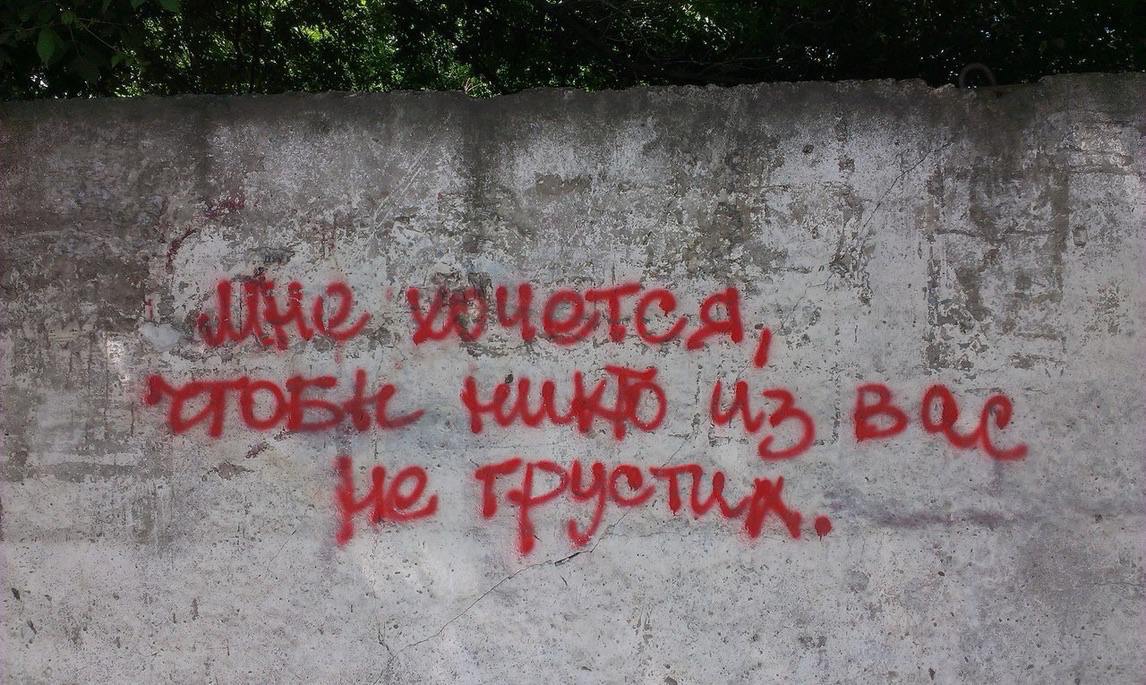 Мне хочется,
чтобы никто из вас
не грустил.